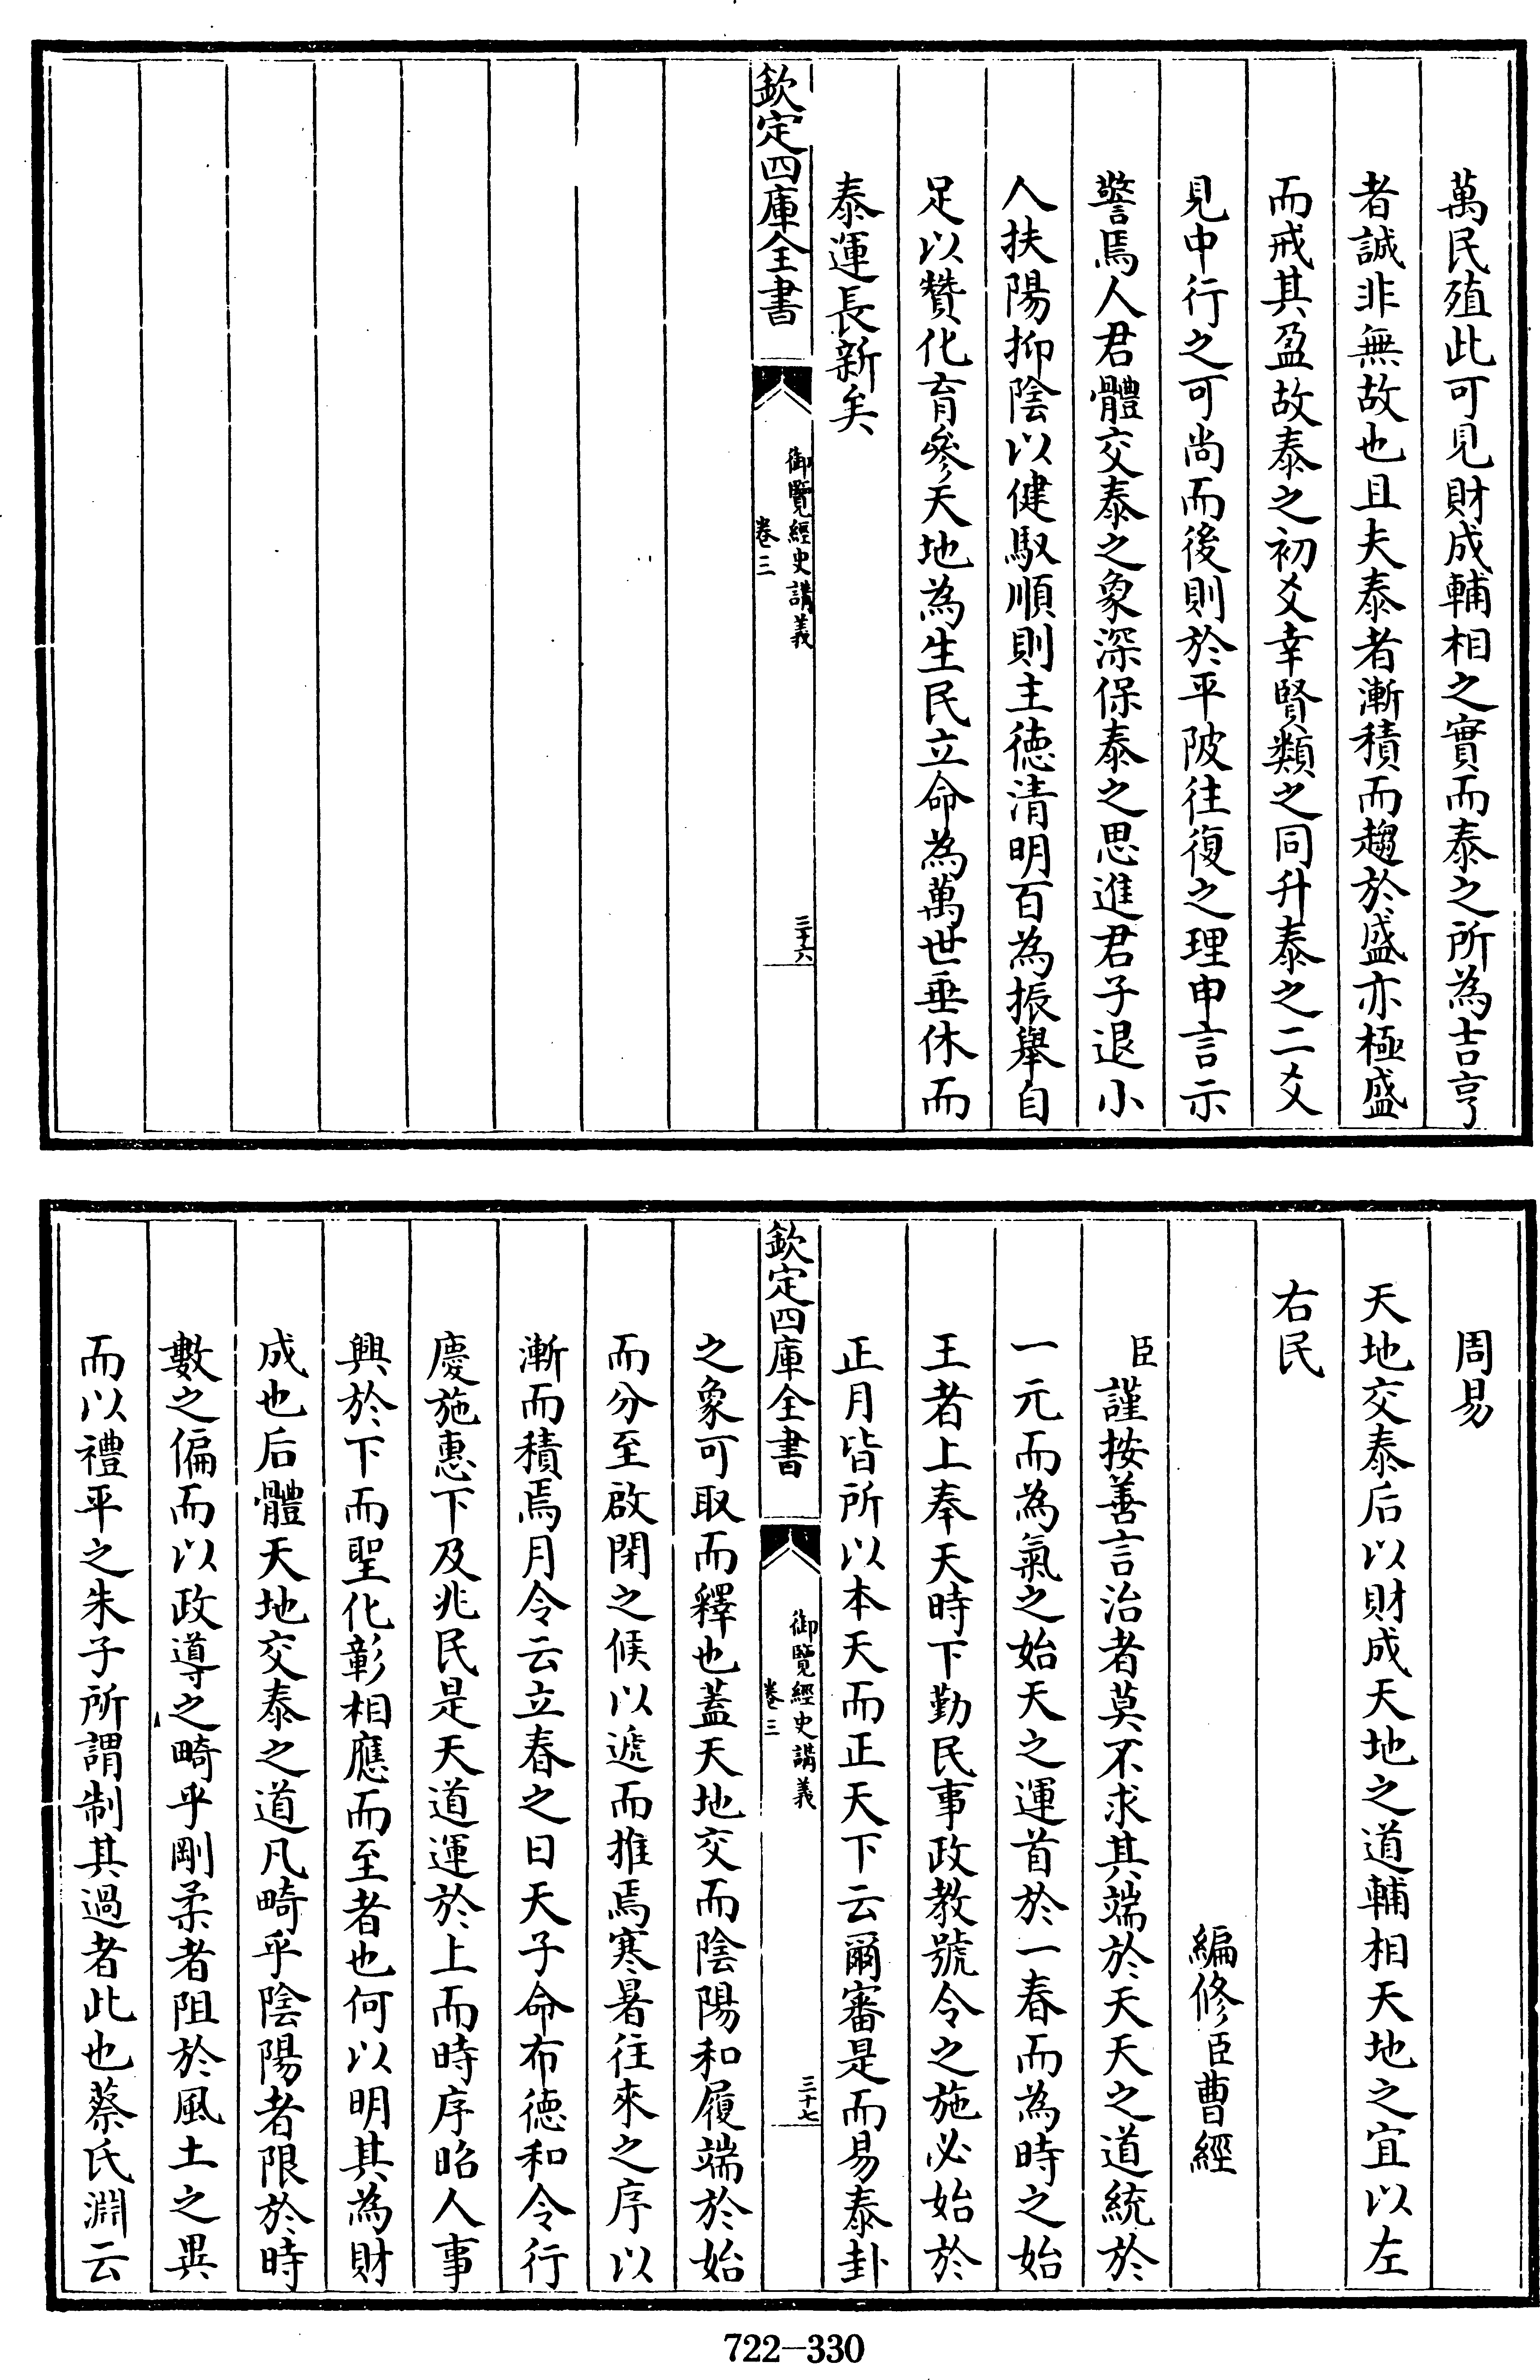 萬民殖此可見財成輔相之實而泰之所為吉亨
者誠非無故也且夫泰者漸積而趨於盛亦極盛
而戒其盈故泰之初爻幸賢類之同升泰之二爻
見中行之可尚而後則於平陂往復之理申言示
警焉人君體交泰之象深保泰之思進君子退小
人扶陽抑陰以健馭順則主德清明百為振舉自
足以贊化育參天地為生民立命為萬世垂休而
泰運長新矣
欽定四庫全書
御覽經史講義
卷三
三十六
周易
天地交泰后以財成天地之道輔相天地之宜以左
右民
編修臣曹經
臣謹按善言治者莫不求其端於天天之道統於
一元而為氣之始天之運首於一春而為時之始
王者上奉天時下勤民事政教號令之施必始於
正月皆所以本天而正天下云爾審是而易泰卦
欽定四庫全書
御覽經史講義
卷三
三十七
之象可取而釋也蓋天地交而陰陽和履端於始
而分至啟閉之候以遞而推焉寒暑往來之序以
漸而積焉月令云立春之日天子命布德和令行
慶施惠下及兆民是天道運於上而時序昭人事
興於下而聖化彰相應而至者也何以明其為財
成也后體天地交泰之道凡畸乎陰陽者限於時
數之偏而以政導之畸乎剛柔者阻於風土之異
而以禮平之朱子所謂制其過者此也蔡氏淵云
722-330